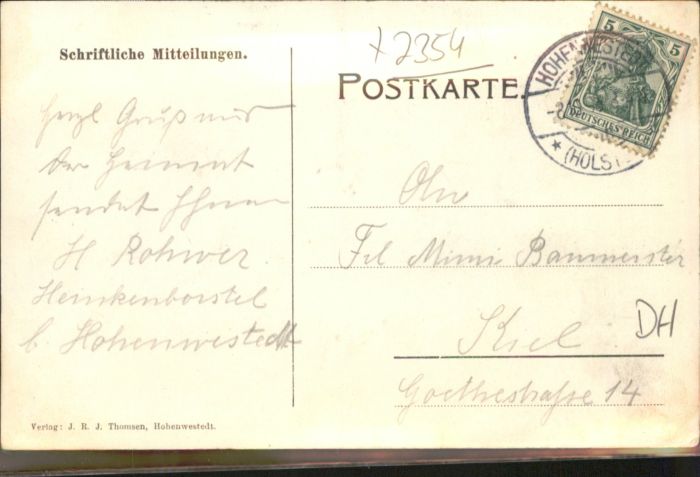 Schriftliche Mitteilungen.
x 2354
POSTKARTE.
5 5
DEUTSCHES REICH
HOHENWESTEDT
* (HOLST
Herzl Gruß aus
der Heimat
sendet Ihnen
H Rohwer
Heinkenborstel
b. Hohenwestedt
An
Frl Mimi Baumeister
Kiel
Goethestraße 14
DH
Verlag: J. R. J. Thomsen, Hohenwestedt.